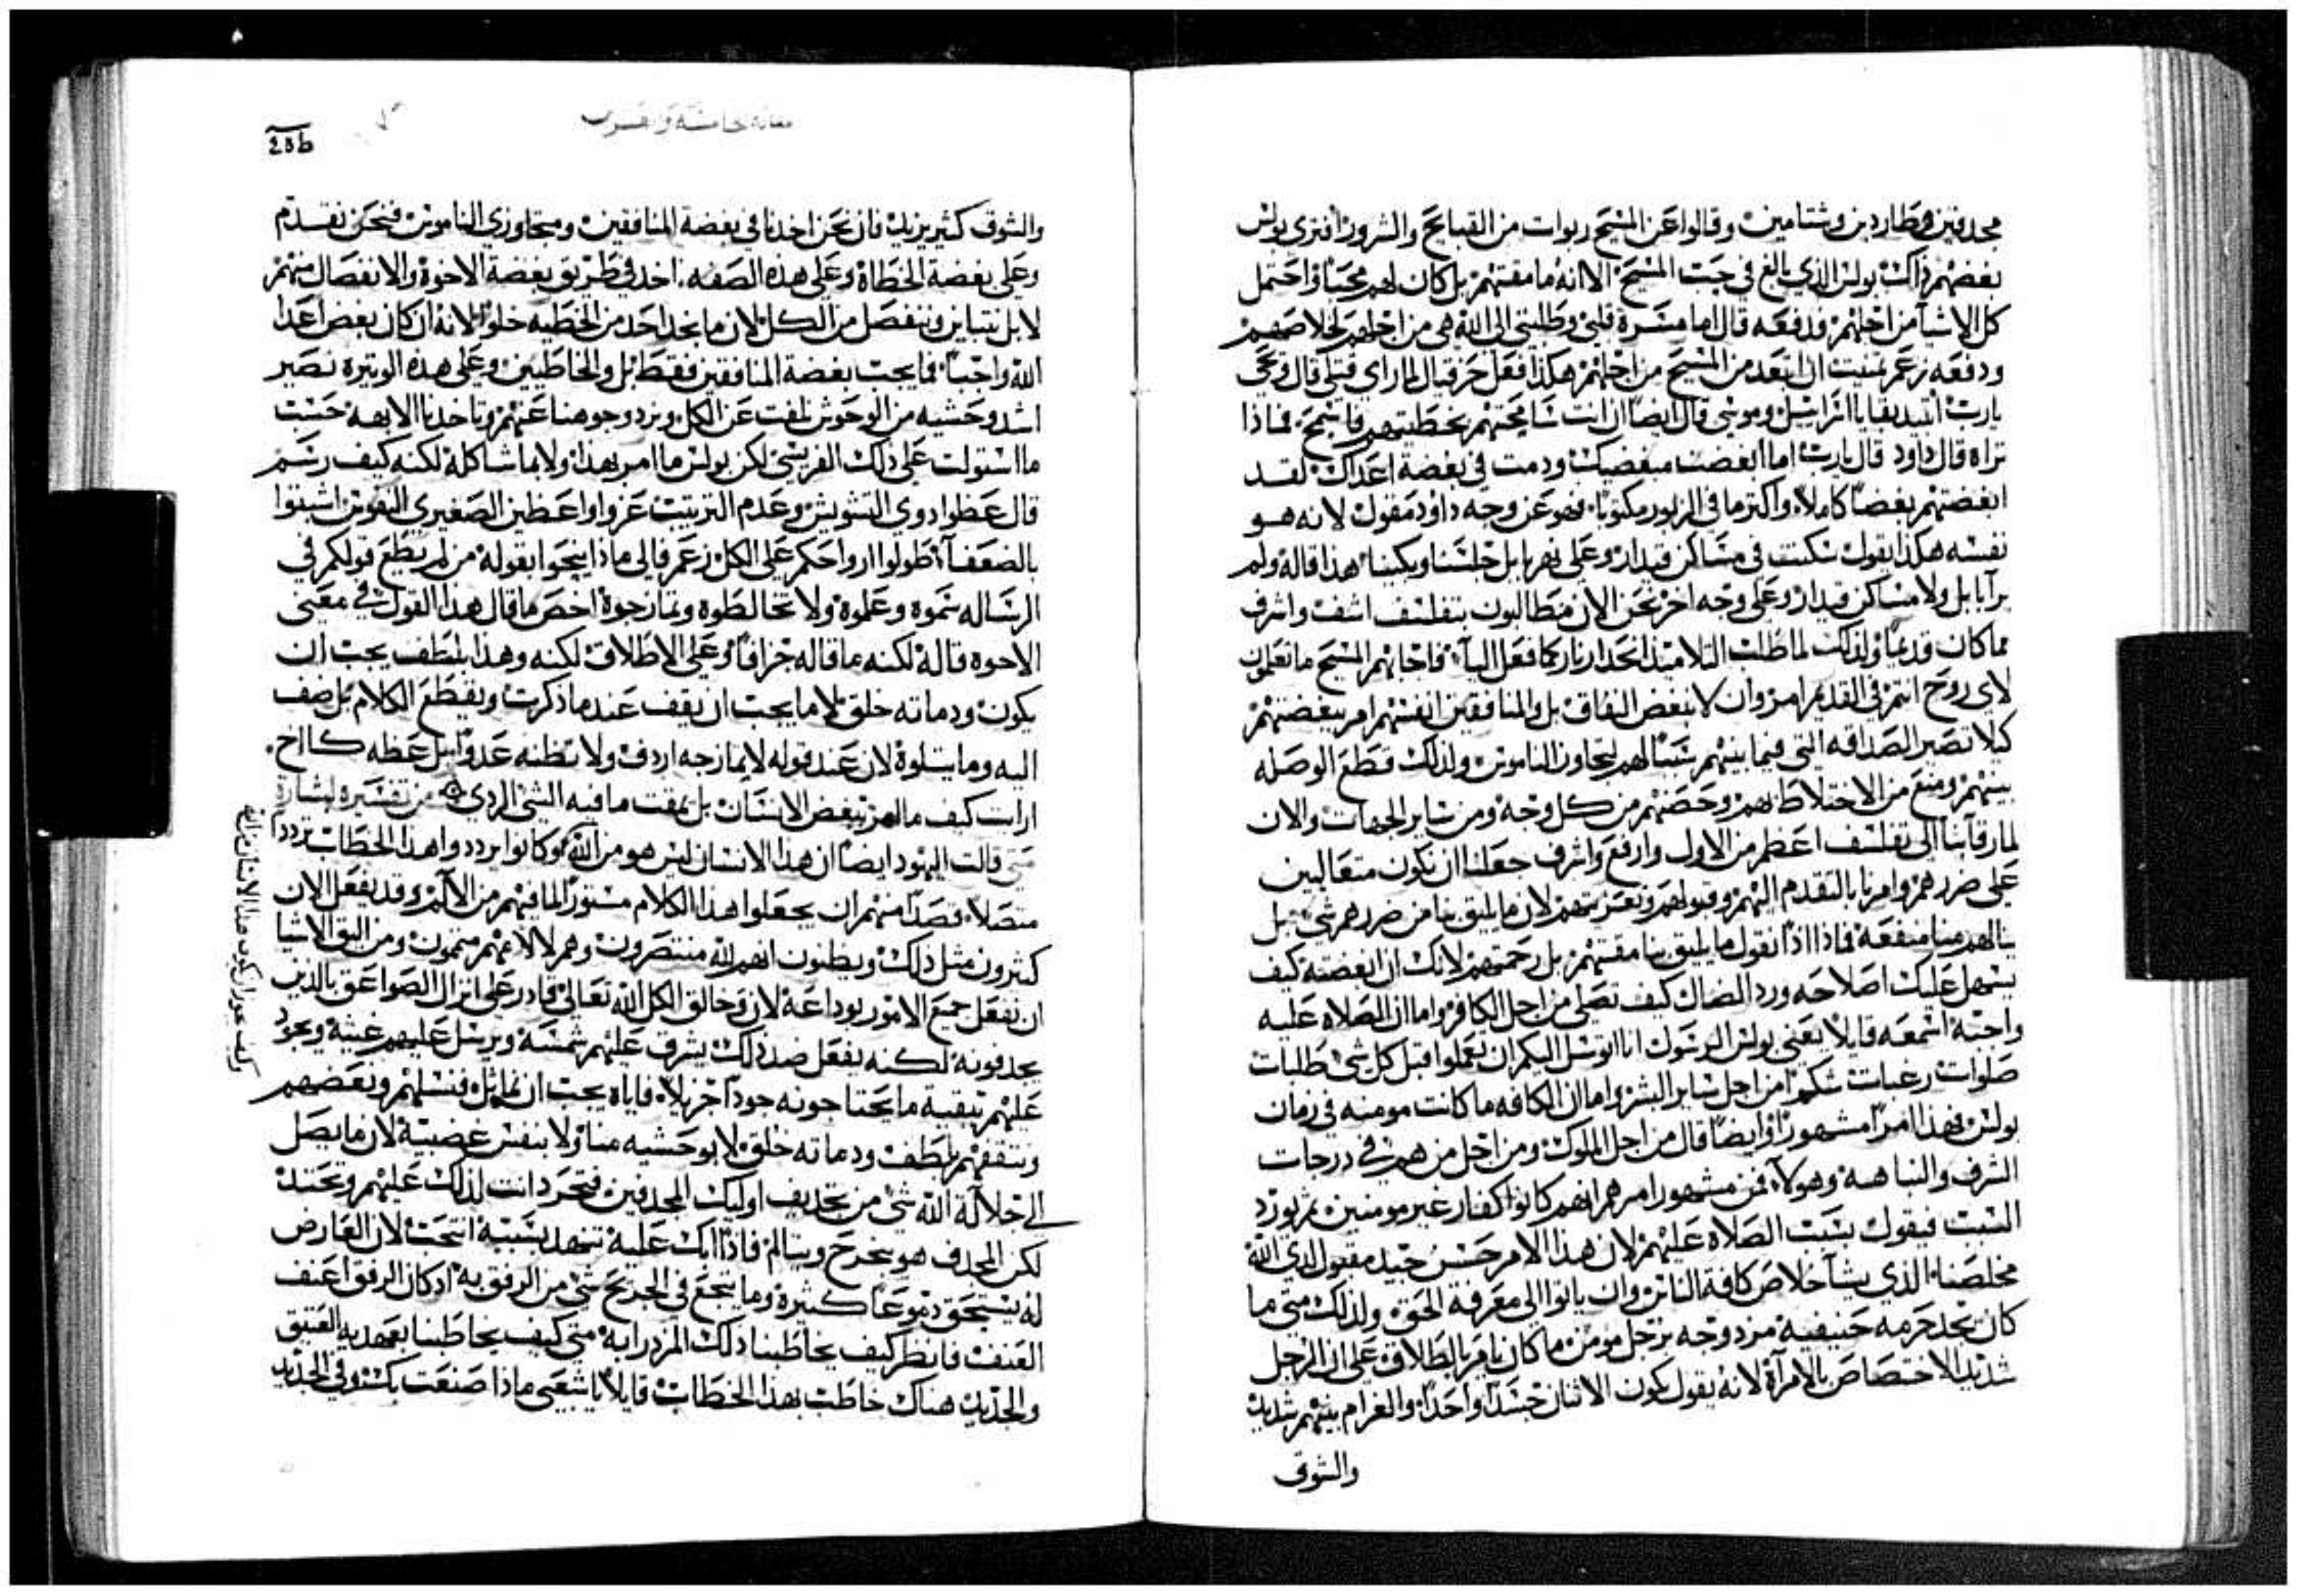 مجدفين وطاردين وشتامين وقالوا عن المسيح ربوات من القبايح والشرور افترى بولس
بغضهم ذاك بولس الذي بالغ في حب المسيح الا انه ما مقتهم بل كان لهم محبا واحتمل
كل الاشيا من اجلهم ودفعه قال اما مسرة قلبي وطلبتي الى الله هي من اجلهم لخلاصهم
ودفعه زعم تمنيت ان ابتعد من المسيح من اجلهم هكذا فعل حزقيال لما راى قتلى قال ويحي
يارب اتبيد بقايا اسراييل وموسى قال ايضا ان انت سامحتهم بخطيتهم فاسمح فماذا
تراه قال داود قال يارب اما ابغضت مبغضيك ودمت في بغضة اعداك لقد
ابغضتهم بغضا كاملا واكثر ما في الزبور مكتوبا فهو عن وجه داود مقول لانه هو
نفسه هكذا يقول سكنت في مساكن قيدار وعلى نهر بابل جلسنا وبكينا هذا قاله ولم
ير ابابل ولا مساكن قيدار وعلى وجه اخر نحن الان مطالبون بتفلسف اشف واشرف
مما كان قديما ولذلك لما طلب التلاميذ انحدار نار كما فعل اليا فاجابهم المسيح ما تعلمون
لاى روح انتم في القديم امروان لا نبغض النفاق بل والمنافقين انفسهم امر ببغضتهم
كيلا تصير الصداقه التى فيما بينهم سببا لهم لتجاوز الناموس ولذلك قطع الوصله
بينهم ومنع من الاختلاط بهم وحصنهم من كل وجه ومن ساير الجهات والان
لما رقانا الى تفلسف اعظم من الاول وارفع واشرف جعلنا ان نكون متعاليين
على ضررهم وامرنا بالتقدم اليهم وقبولهم وتعزيتهم لان ما يليق بنا من ضررهم شي بل
ينالهم منا منفعة فاذا اذا نقول ما يليق بنا مقتهم بل رحمتهم لانك ان ابغضته كيف
يسهل عليك اصلاحه ورد الضال كيف تصلى من اجل الكافر واما ان الصلاه عليه
واجبة اسمعه قايلا يعنى بولس الرسول انا اتوسل اليكم ان تعملوا قبل كل شى طلبات
صلوات رغبات شكرا من اجل ساير البشر واما ان الكافه ما كانت مومنه في زمان
بولس فهذا امرا مشهورا وايضا قال من اجل الملوك ومن اجل من هم في درجات
الشرف والنباهه وهولآ فمن مشهور امرهم انهم كانوا كفار غير مومنين ثم يورد
السبب فيقول بسبب الصلاه عليهم لان هذا الامر حسن جيد مقبول لدى الله
مخلصنا الذي يشآ خلاص كافة الناس وان ياتوا الى معرفة الحق ولذلك متى ما
كان يجد حرمه حنيفية مزدوجه برجل مومن ما كان يامر بالطلاق على ان الرجل
شديد الاختصاص بالامرآة لانه يقول يكون الاثنان جسدا واحدا والغرام بينهم شديد
والشوق
236
مقاله خامسة وعشرون
والشوق كثير يزيد فان نحن اخدنا في بغضة المنافقين ومتجاوزي الناموس فنحن نتقدم
وعلى بغضة الخطاة وعلى هذه الصفه اخد في طريق بغضة الاخوة والانفصال منهم
لا بل نتباين وننفصل من الكل لان ما نجد احد من الخطيه خلوا لانه ان كان بغض اعدا
الله واجبا فما يجب بغضة المنافقين فقط بل والخاطيين وعلى هذه الوتيرة نصير
اشد وحشيه من الوحوش نلفت عن الكل ونرد وجوهنا عنهم وتاخدنا الابهة حسب
ما استولت على ذلك الفريسى لكن بولس ما امر بهذا ولا بما شاكله لكنه كيف رسم
قال عظوا دوي التشويش وعدم الترتيب عزوا واعظين الصغيري النفوس اسندوا
بالضعفآ طولوا ارواحكم على الكل زعم فالى ماذا ينحوا بقوله من لم يطع قولكم في
الرساله سموه وعلموه ولا تخالطوه وتمازجوه اخص ما قال هذا القول في معنى
الاخوه قاله لكنه ما قاله جزافا وعلى الاطلاق لكنه وهذا بلطف يجب ان
يكون ودماته خلق لا ما يجب ان نقف عند ما ذكرت ونقطع الكلام بل نضف
اليه وما يتلوه لان عند قوله لا يمازجه اردف ولا تظنه عدوا بل عظه كااخ
ارايت كيف ما امر ببغض الانسان بل بمقت ما فيه الشى الردي من تفسيره لبشارة
متى قالت اليهود ايضا ان هذا الانسان ليس هو من الله فكانوا يرددوا هذا الخطاب ترددا
متصلا قصدا منهم ان يجعلوا هذا الكلام مستورا لما فيهم من الآلم وقد يفعل الان
كثيرون مثل ذلك ويظنون انهم لله منتصرون وهم لالامهم متممون ومن اليق الاشيا
ان نفعل جميع الامور بوداعة لان وخالق الكل الله تعالى قادر على انزال الصواعق بالذين
يجدفونه لكنه يفعل ضد ذلك يشرق عليهم شمسه ويرسل عليهم غيثه ويجود
عليهم ببقية ما يحتاجونه جودا جزيلا فاياه يجب ان نماثل فنسلهم ونعضهم
ونتقفهم بلطف ودماته خلق لا بوحشيه منا ولا بنفس غضبية لان ما يصل
الى جلالة الله شى من تجديف اوليك المجدفين فتحرد انت لذلك عليهم وتحتد
لكن المجدف هو ينجرح ويتالم فاذا ابك عليه تنهد بسببه انتحب لان العارض
له يستحق دموعا كثيرة وما ينجع في الجريح شى من الرفق به اذ كان الرفق اعنف
العنف فانظر كيف يخاطبنا ذلك المزدرا به متى كيف يخاطبنا بعهديه العتيق
والجديد هناك خاطب بهذا الخطاب قايلا يا شعبي ماذا صنعت بك وفي الجديد